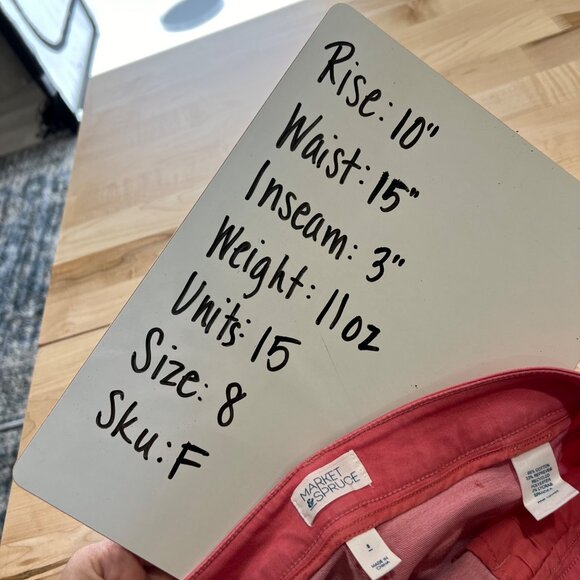 Rise: 10"
Waist: 15"
Inseam: 3"
Weight: 11oz
Units: 15
Size: 8
Sku: F
MARKET
& SPRUCE
8
MADE IN
CHINA